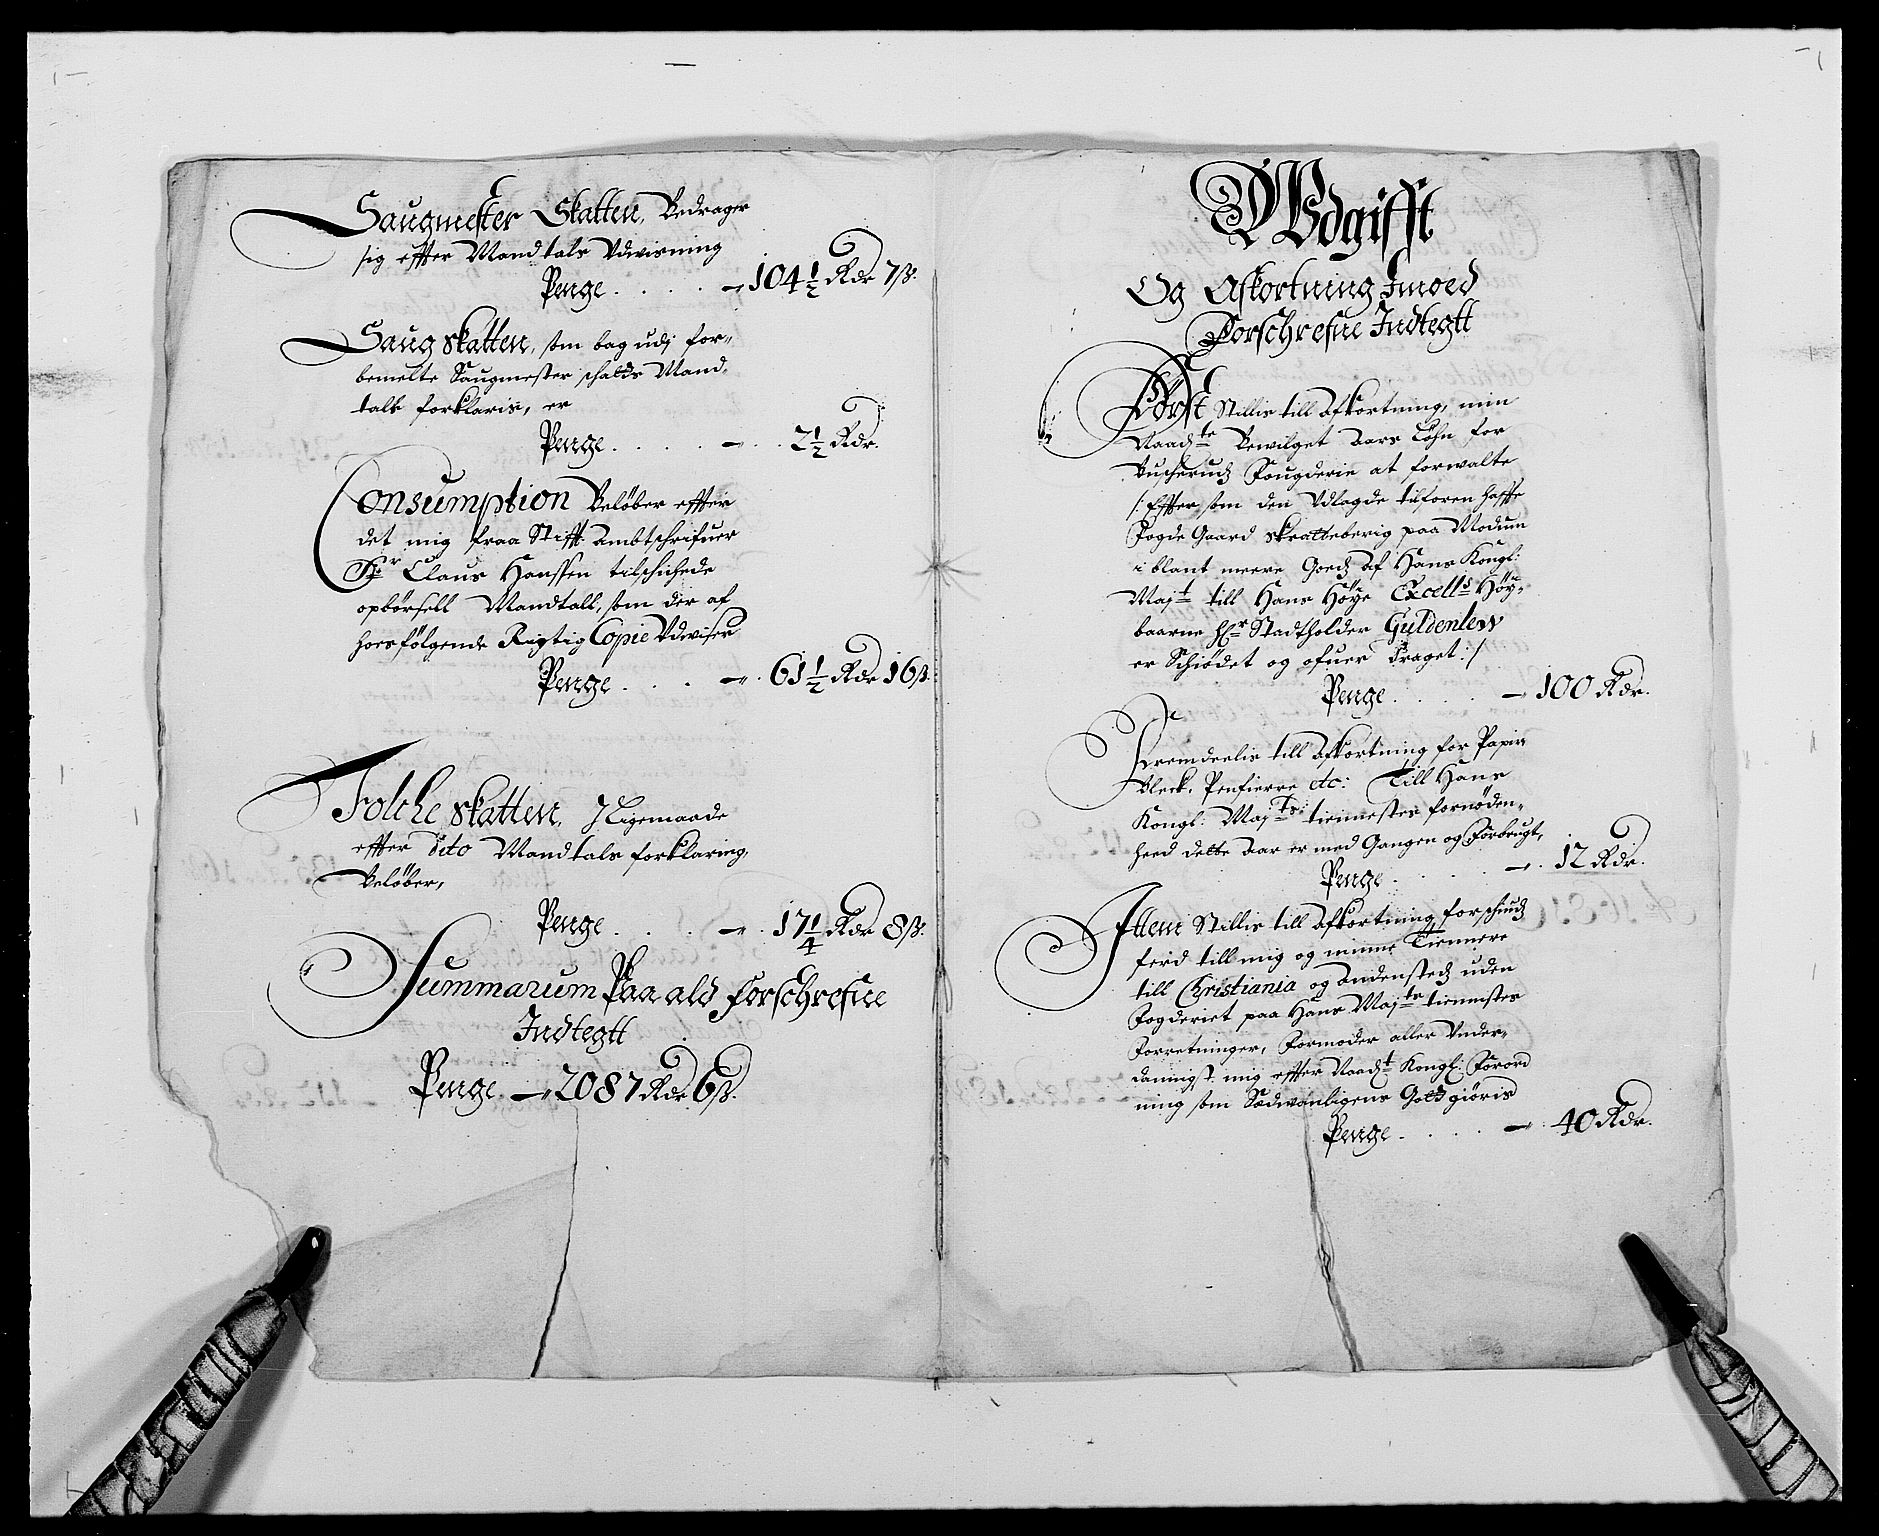 Saugmester Skatten, Bedrager
sig effter Mandtals Udwisning
Penge . . . . - 104 1/2 Rdr 7 ß.
Saug skatten, som bag udj for-
bemelte Saugmester schatds Mand-
tall forklaris, er
Penge . . . . - . . 2 1/2 Rdr.
Consumption Beløber effter
det mig fraa Stifft Ambtschrifuer
Hr Claus Hanssen tilschichede
opbørsell Mandtall, som der af
hosfølgende Rigtig Copie Udwiser
Penge . . . - . 61 1/2 Rdr 16 ß.
Folche skatten, J Ligemaade
effter dito Mandtals forklaring,
Beløber,
Penge . . . . - . 17 1/4 Rdr 8 ß.
Summarum Paa ald forschrefne
Indtegtt
Penge - 2087 Rdr 6 ß.
Udgifft
Og Afkortning Imoed
Forschrefne Indtegtt
Først Stillis till afkortning, min
Naadte Bewilget Aars Løhn for
Buscherudz Fougderie at forwalte
/: Effter som den Udlagde tilforen haffte
Fogde Gaard Skratteberig paa Modum
i blant meere Goedz af Hans Kongl:
Majt till Hans Høye Excells Høy-
baarne Hr Stadtholder Guldenlew
er Schiødet og ofuer Draget :/
Penge . . . . - 100 Rdr.
Fremdeelis till afkortning for Papir
Bleck, Penfierre etc: Till Hans
Kongl: Majts tiennestes fornøden-
heed dette Aar er med Gangen og Forbrugt,
Penge . . . . - . 12 Rdr.
Ittem Stillis till afkortning for schiudz
ferd till mig og minne Tiennere
till Christiania og andenstedz uden
Fogderiet paa Hans Majts tiennistes
Forretninger, Formoder aller Under-
danigst mig effter Naadt Kongl: Forord
ning som Sædwanligens Gott giøris
Penge . . . . - . 40 Rdr.